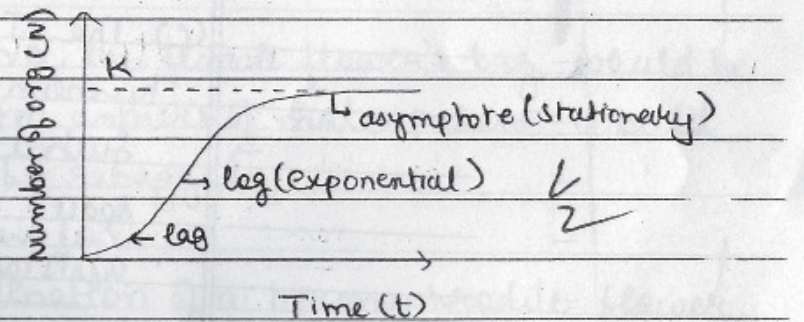 Number of org (N)
K
asymptote (stationary)
log (exponential)
lag
2
Time (t)